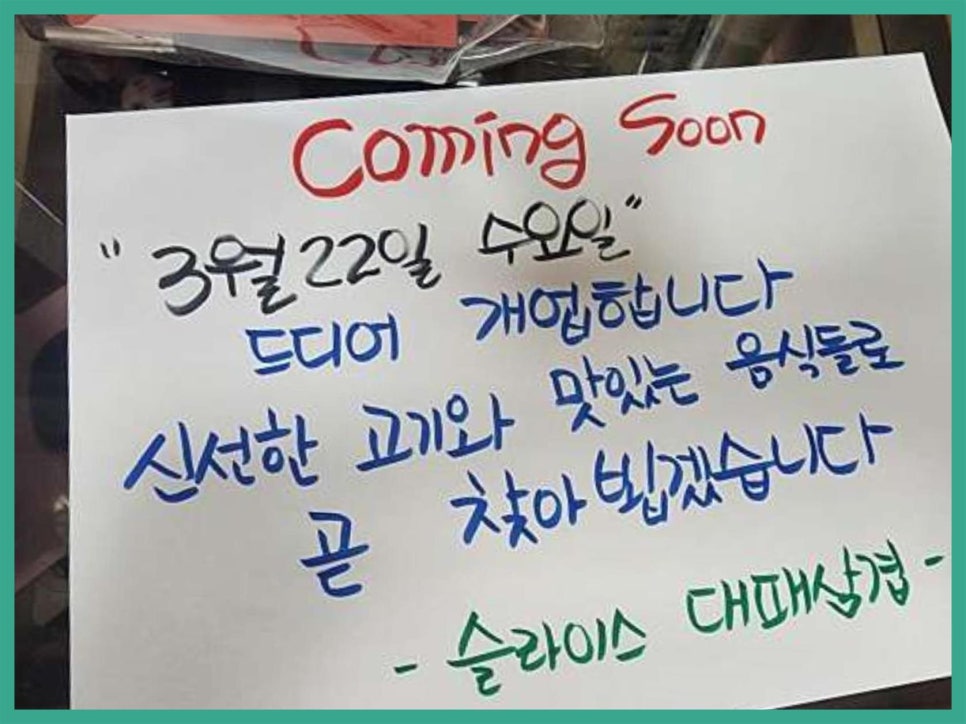 Coming Soon
"3월 22일 수요일"
드디어 개업합니다
신선한 고기와 맛있는 음식들로
곧 찾아뵙겠습니다
- 슬라이스 대패삼겹 -